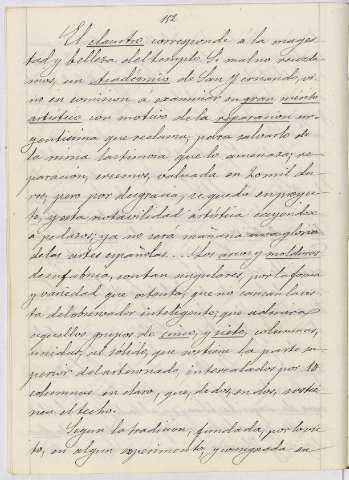 152
El claustro corresponde á la majes-
tad y belleza del templo. Si mal no recorda-
mos, un Académico de San Fernando, vi-
no en comision á examinar su gran mérito
artístico con motivo de la reparacion ur-
gentísima que reclama, para salvarlo de
la ruina lastimosa que lo amenaza; re-
paracion, creemos, valuada en 20 mil du-
ros, pero por desgracia, se quedó en proyec-
to, y esta notabilidad artística cayendo
a pedazos; ya no será mañana una gloria
de las artes españolas... Los arcos y molduras
de su fábrica, son tan singulares, por la forma
y variedad que ostenta, que no cansan la vis-
ta del observador inteligente, que admira
aquellos grupos de cinco, y siete, columnas,
unidas, al sólido, que sostiene la parte su-
perior del artesonado, intercalados por 10
columnas en claro, que, de dos, en dos, sostie-
nen el techo.
Segun la tradicion, fundada, por lo vis-
to, en algun experimento y consignada en